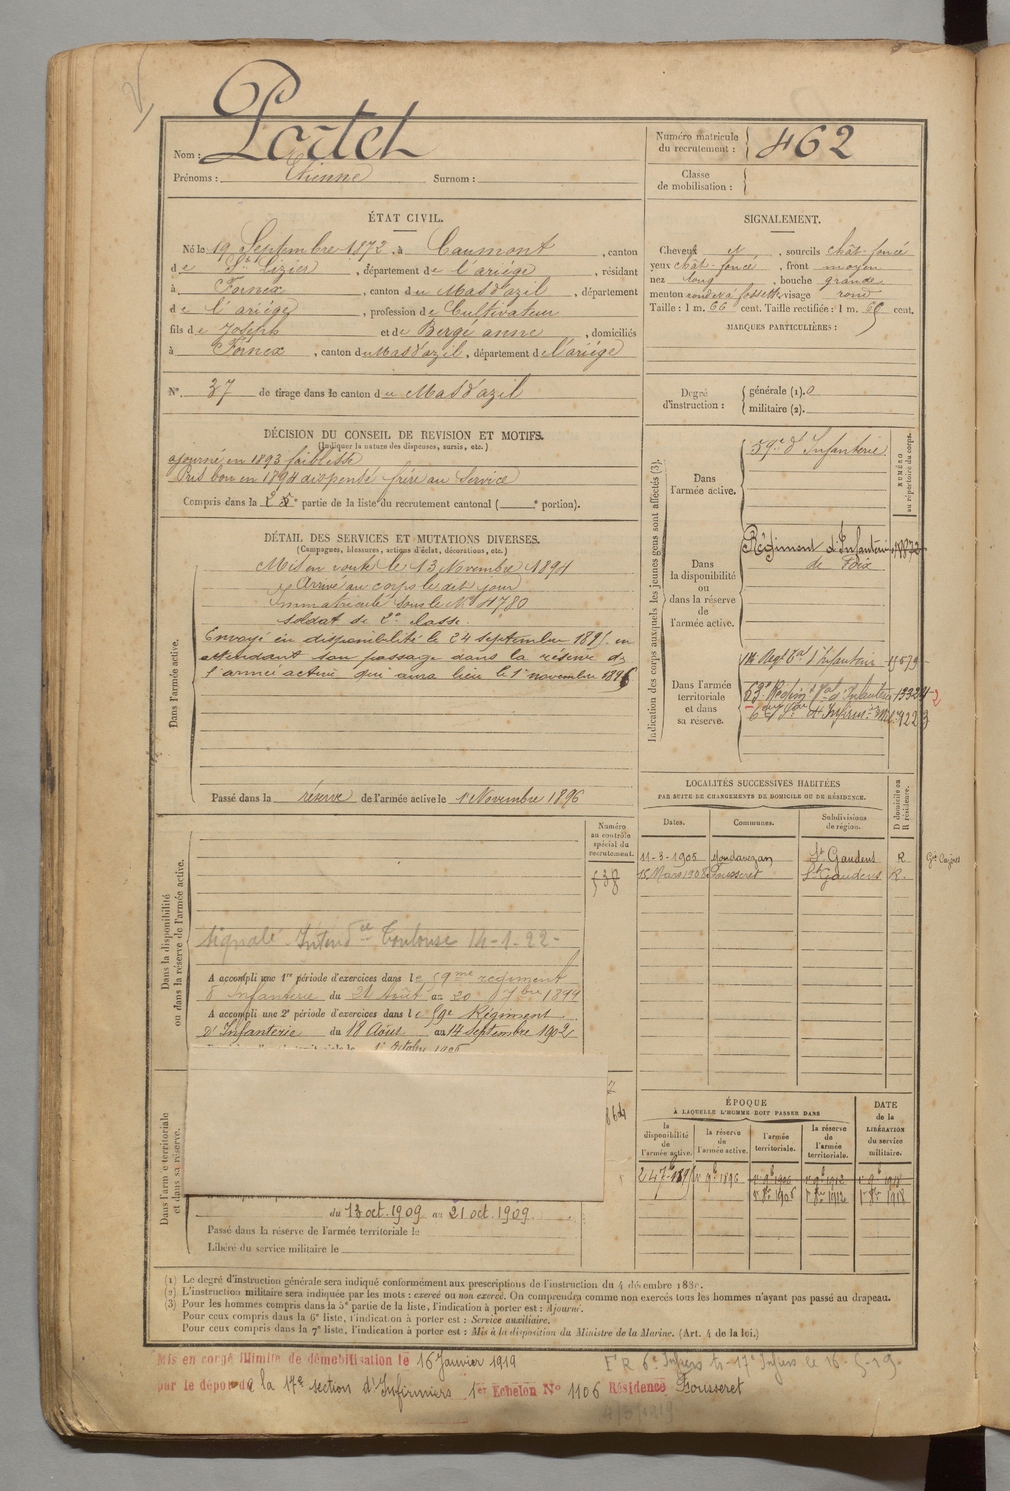 Nom : Portet
Prénoms : Etienne Surnom :
Numéro matricule du recrutement : 462
Classe de mobilisation :
ÉTAT CIVIL.
Né le 19 Septembre 1872, à Caumont, canton
de St Lizier, département de l'ariège, résidant
à Fornex, canton du Mas d'azil, département
de l'ariège, profession de Cultivateur
fils de Joseph et de Bergé anne, domiciliés
à Fornex, canton du Mas d'azil, département de l'ariège
N° 37 de tirage dans le canton du Mas d'azil
SIGNALEMENT.
Cheveux et, sourcils chât. foncé
yeux chât. foncé, front moyen
nez long, bouche grande
menton rond et à fossette visage rond
Taille : 1 m. 66 cent. Taille rectifiée : 1 m. 66 cent.
MARQUES PARTICULIÈRES :
Degré d'instruction : générale (1). 0
militaire (2).
DÉCISION DU CONSEIL DE REVISION ET MOTIFS.
(Indiquer la nature des dispenses, sursis, etc.)
ajourné en 1893 faiblesse
Pris bon en 1894 dispensé frère au Service
Compris dans la partie de la liste du recrutement cantonal ( portion).
DÉTAIL DES SERVICES ET MUTATIONS DIVERSES.
(Campagnes, blessures, actions d'éclat, décorations, etc.)
Dans l'armée active.
Mis en route le 13 Novembre 1894
Arrivé au corps le dit jour
Immatriculé sous le N° 4780
soldat de 2e classe.
Envoyé en disponibilité le 24 septembre 1895 en
attendant son passage dans la réserve de
l'armée active qui aura lieu le 1er novembre 1896
Passé dans la réserve de l'armée active le 1 Novembre 1896
Indication des corps auxquels les jeunes gens sont affectés (3).
NUMÉRO au répertoire du corps.
Dans l'armée active.
59e d'Infanterie
Dans la disponibilité ou dans la réserve de l'armée active.
Régiment d'Infanterie
de Foix
Dans l'armée territoriale et dans sa réserve.
LOCALITÉS SUCCESSIVES HABITÉES
PAR SUITE DE CHANGEMENTS DE DOMICILE OU DE RÉSIDENCE.
Dates. Communes. Subdivisions de région. D domicile ou R résidence.
11-3-1906 Mondavezan St Gaudens R
15 Mars 1908 Fousseret St Gaudens R.
Dans la disponibilité ou dans la réserve de l'armée active.
Numéro au contrôle spécial du recrutement.
538
Signalé Intendce Toulouse 14-1-22-
A accompli une 1re période d'exercices dans le 59me régiment
d'Infanterie du 24 Août au 20 7bre 1899
A accompli une 2e période d'exercices dans le 59e Régiment
d'Infanterie du 18 Août au 14 septembre 1902
Dans l'armée territoriale et dans sa réserve.
du 13 oct. 1909 au 21 oct. 1909
Passé dans la réserve de l'armée territoriale le
Libéré du service militaire le
ÉPOQUE
À LAQUELLE L'HOMME DOIT PASSER DANS
la disponibilité de l'armée active. la réserve de l'armée active. l'armée territoriale. la réserve de l'armée territoriale.
DATE de la LIBÉRATION du service militaire.
24 7b 1895 1r 9b 1896 1r 9b 1906 1r 9b 1912 1r 9b 1918
1r 8bre 1906 1r 8bre 1912 1r 8bre 1918
(1) Le degré d'instruction générale sera indiqué conformément aux prescriptions de l'instruction du 4 décembre 1889.
(2) L'instruction militaire sera indiquée par les mots : exercé ou non exercé. On comprendra comme non exercés tous les hommes n'ayant pas passé au drapeau.
(3) Pour les hommes compris dans la 5e partie de la liste, l'indication à porter est : Ajourné.
Pour ceux compris dans la 6e liste, l'indication à porter est : Service auxiliaire.
Pour ceux compris dans la 7e liste, l'indication à porter est : Mis à la disposition du Ministre de la Marine. (Art. 4 de la loi.)
Mis en congé illimité de démobilisation le 16 Janvier 1919
par le dépôt de la 17e section d'Infirmiers 1er Echelon N° 1106 Résidence Fousseret